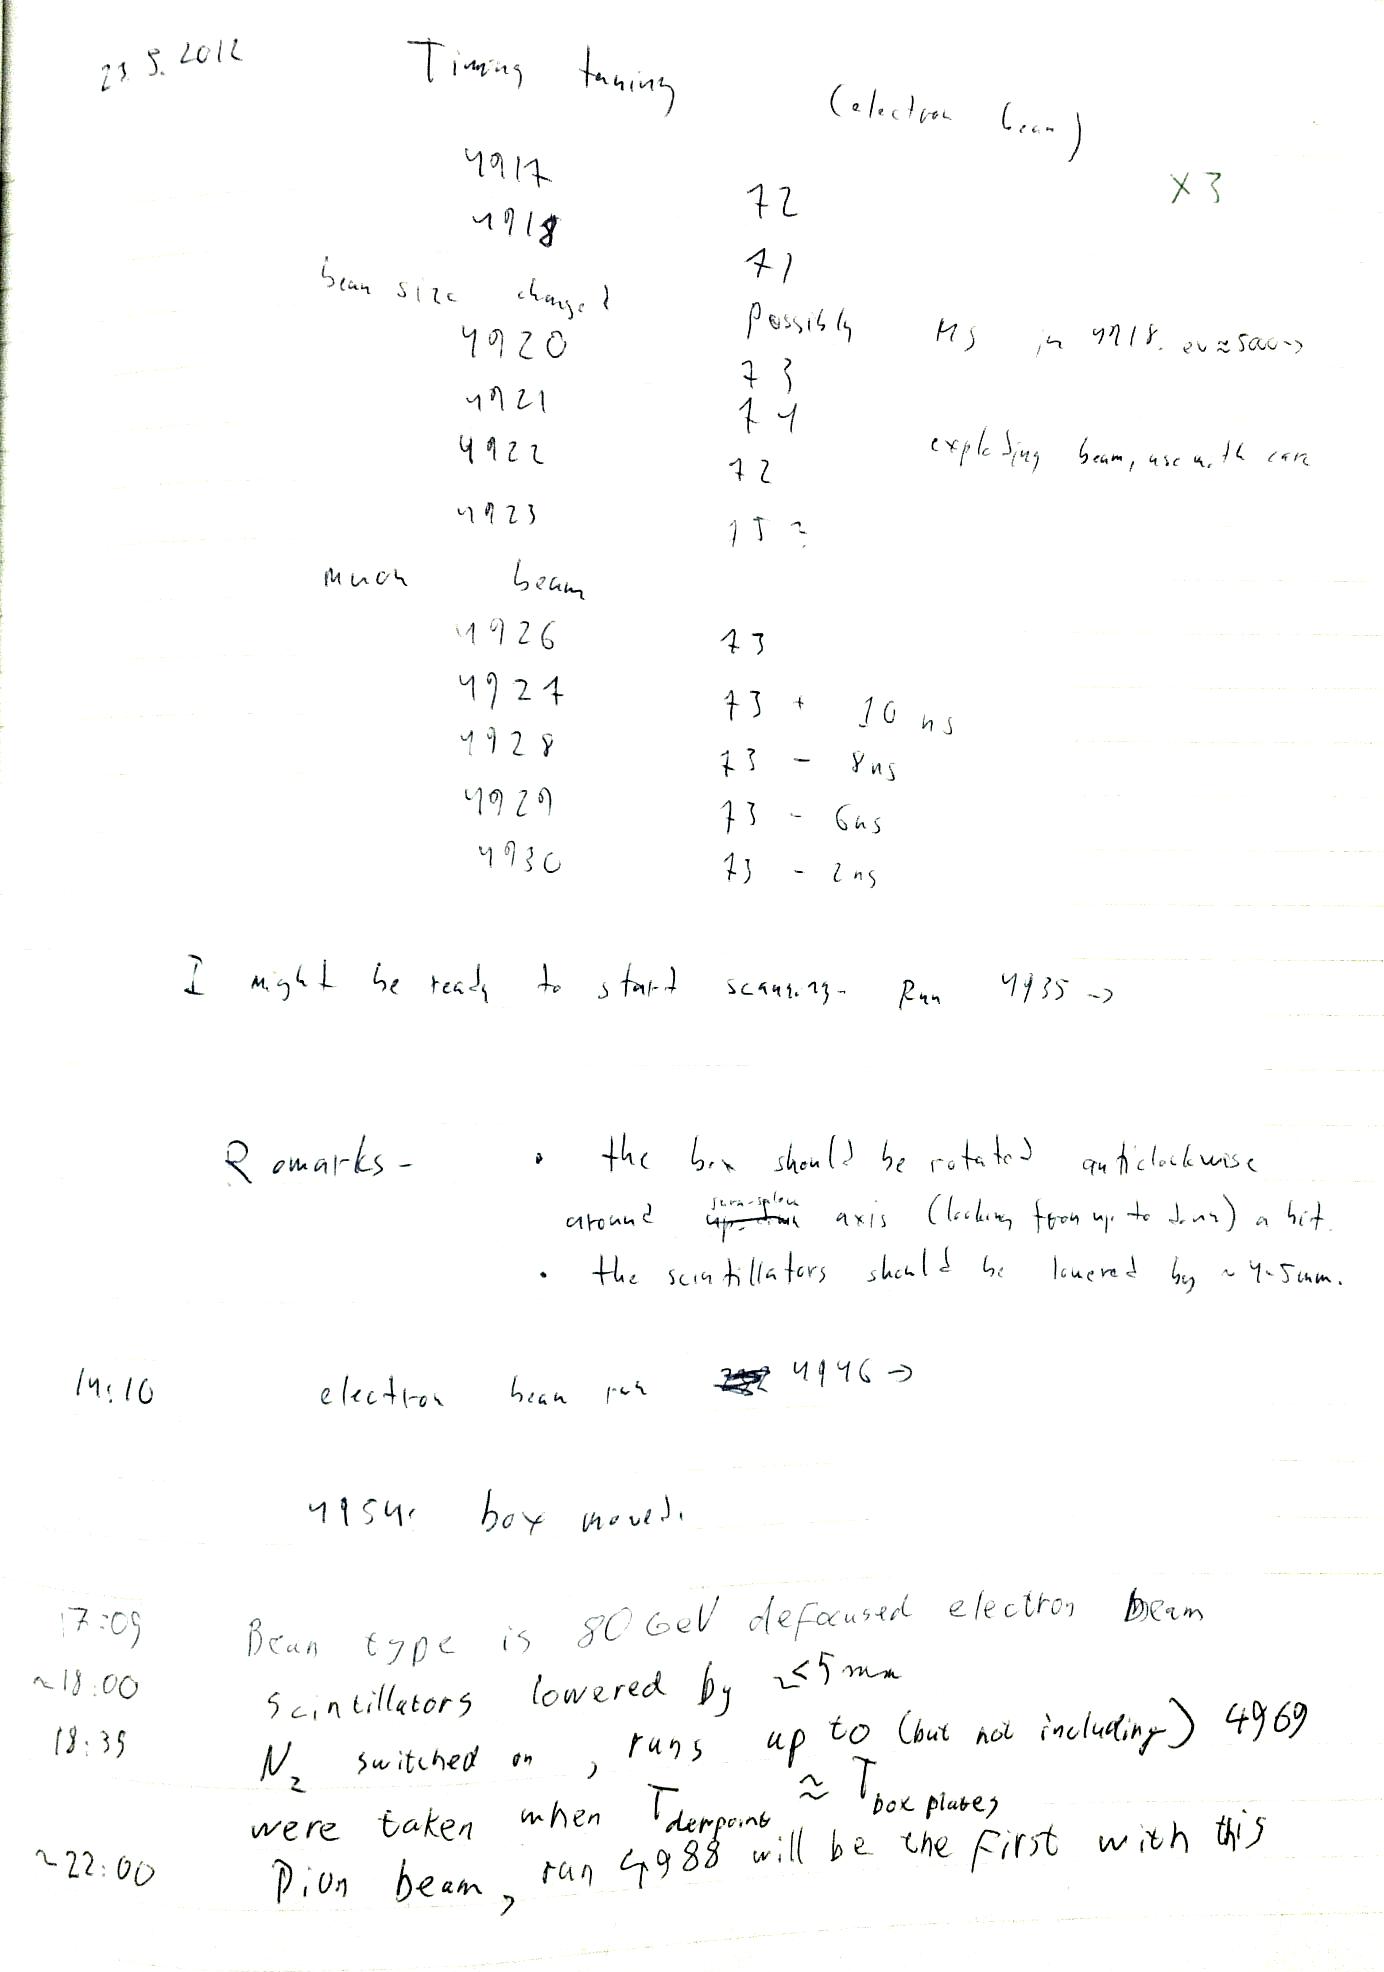 23.5.2012 Timing tuning (electron beam)
x3
4917 72
4918 71
beam size changed possibly MS in 4918. ev≈5000→
4920 73
4921 74
4922 72 exploding beam, use with care
4923 75?
much beam
4926 73
4927 73 + 10 ns
4928 73 - 8ns
4929 73 - 6ns
4930 73 - 2ns
I might be ready to start scanning - Run 4935 →
Remarks - • the box should be rotated anticlockwise
jura-saleve
around axis (looking from up to down) a bit.
• the scintillators should be lowered by ~ 4-5mm.
14:10 electron beam run 4946 →
4954: box moved.
17:09 Beam type is 80 GeV defocused electron beam
~18:00 Scintillators lowered by ~≤5mm
18:35 N2 switched on, runs up to (but not including) 4969
were taken when Tdewpoint ≈ Tbox plates
~22:00 Pion beam, run 4988 will be the first with this